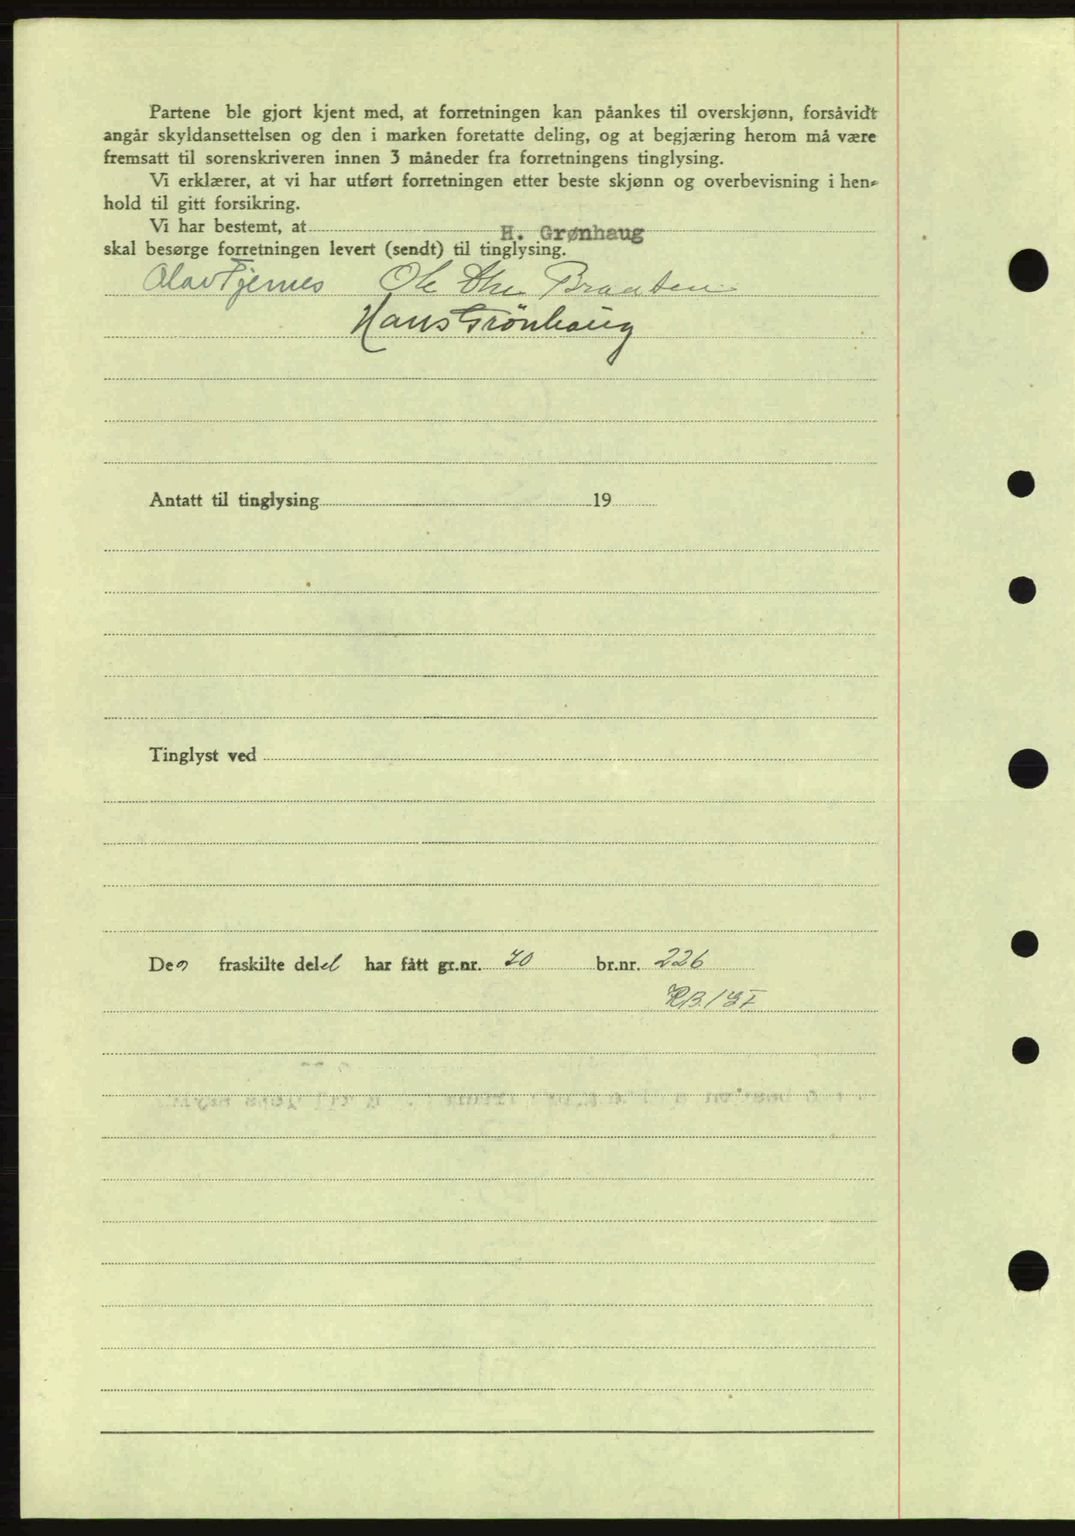 Partene ble gjort kjent med, at forretningen kan påankes til overskjønn, forsåvidt
angår skyldansettelsen og den i marken foretatte deling, og at begjæring herom må være
fremsatt til sorenskriveren innen 3 måneder fra forretningens tinglysing.
Vi erklærer, at vi har utført forretningen etter beste skjønn og overbevisning i hen-
hold til gitt forsikring.
Vi har bestemt, at H. Grønhaug
skal besørge forretningen levert (sendt) til tinglysing.
Olav Fjernes Ole Braaten
Hans Grönhaug
Antatt til tinglysing 19
Tinglyst ved
Den fraskilte del har fått gr.nr. 70 br.nr. 226